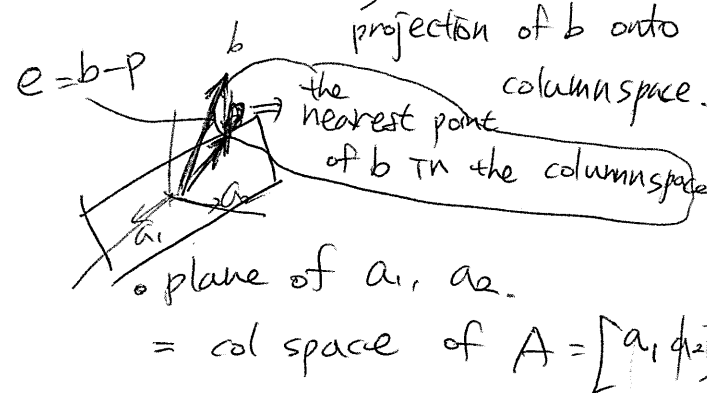 projection of b onto
columnspace.
b
e = b-p
the
nearest point
of b in the columnspace
p
a1
a2
• plane of a1, a2.
= col space of A = [a1 a2]